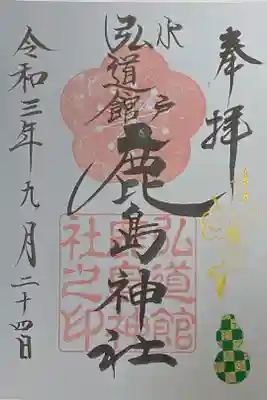 奉拝
水戸
弘道館
鹿島神社
弘道館
鹿島神
社之印
令和三年九月二十四日